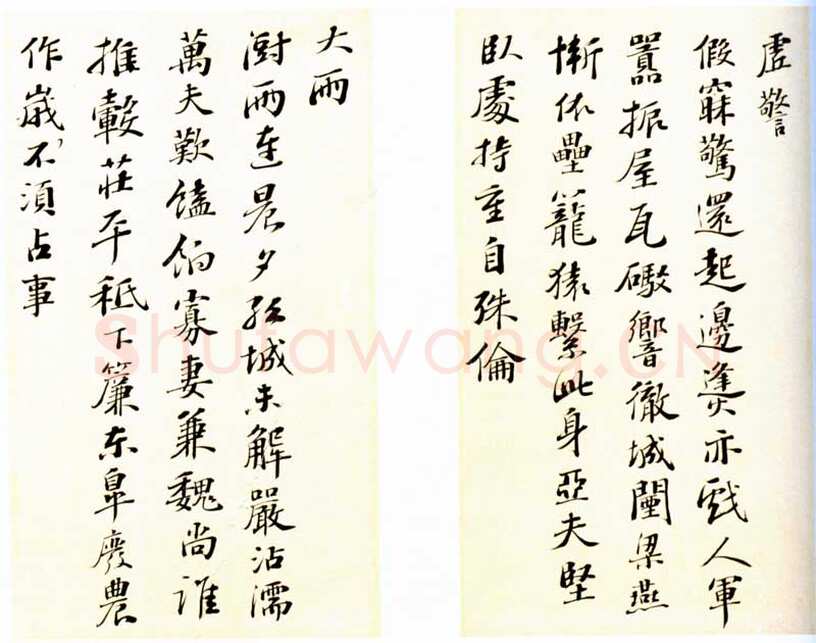 虛警
假寐驚還起邊㷭亦戲人軍
囂振屋瓦礮響徹城闉梁燕
慚依壘籠猿繫此身亞夫堅
臥處持重自殊倫
大雨
澍雨連晨夕孤城未解嚴沾濡
萬夫歎饁餉寡妻兼魏尚誰
推轂莊平秪下簾東皋廢農
作歲不須占事
Shufawang.CN